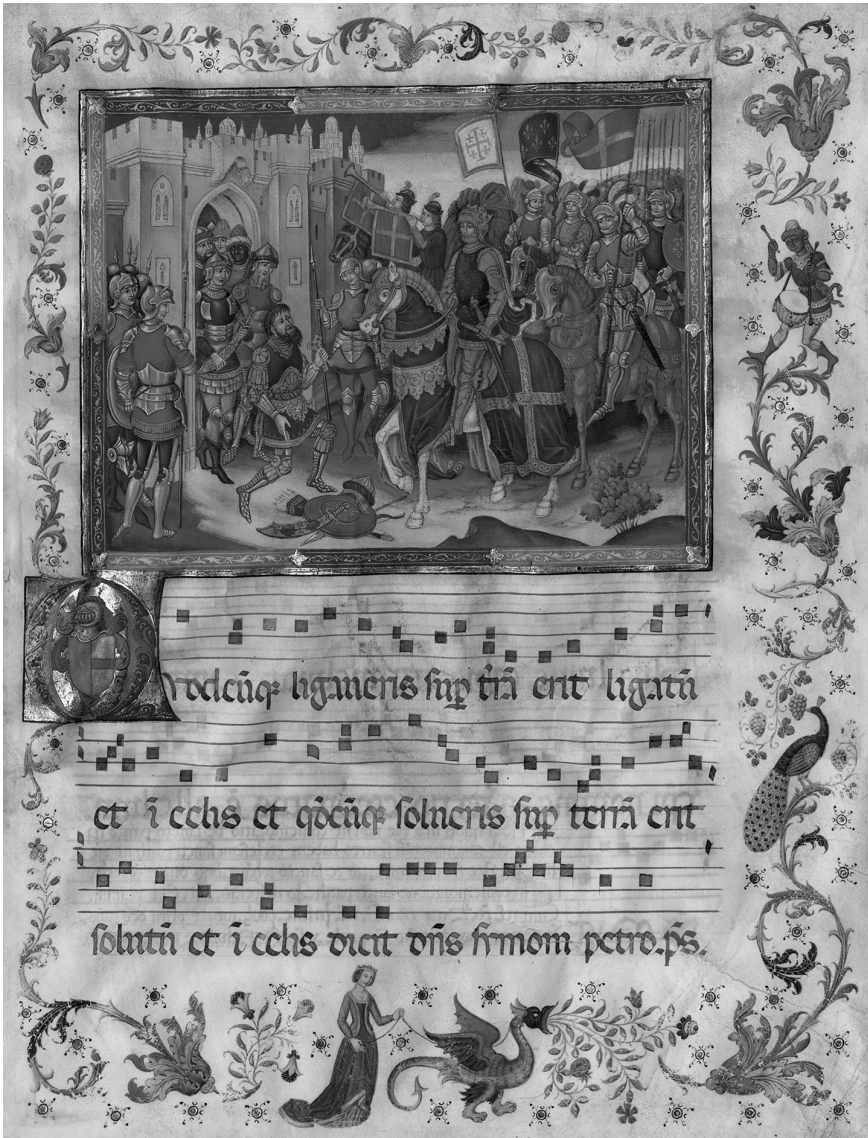 Qvodcūqꝫ ligaueris suꝑ t̄rā erit ligatū
et ī celis et qd̄cūqꝫ solueris suꝑ terrā erit
solutū et ī celis dicit dn̄s symoni petro. ps̄.